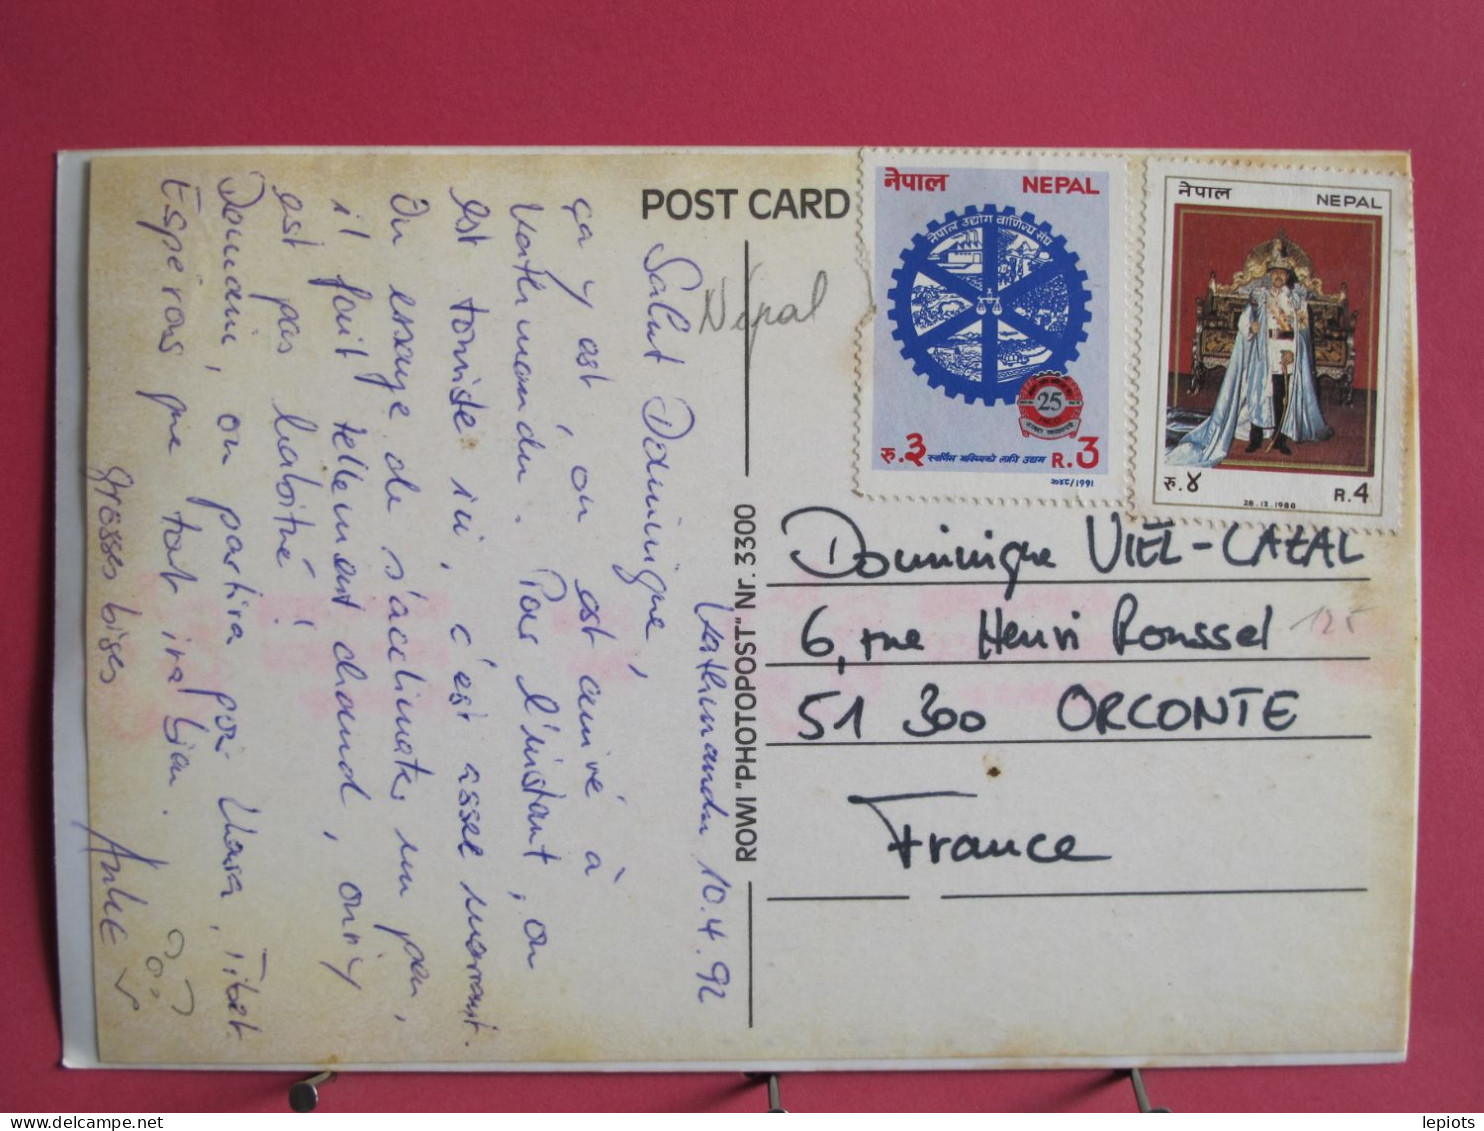 POST CARD
Nepal
ROWI "PHOTOPOST" Nr. 3300
नेपाल NEPAL
नेपाल उद्योग वाणिज्य संघ
25
रु.३ स्वर्णिम भविष्यको लागि उद्योग R.3
२०४८/1991
नेपाल NEPAL
रु.४ 28.12.1986 R.4
Kathmandu 10.4.92
Salut Dominique,
ça y est, on est arrivé à
Kathmandu. Pour l'instant, on
est touriste ici, c'est assez marrant.
On essaye de s'acclimater un peu,
il fait tellement chaud, on n'y
est pas habitué!
Demain, on partira pour Lhasa, Tibet.
Espérons que tout ira bien.
grosses bises
Dominique VIEL-CAZAL
6, rue Henri Roussel
125
51 300 ORCONTE
France
delcampe.net
lepiots